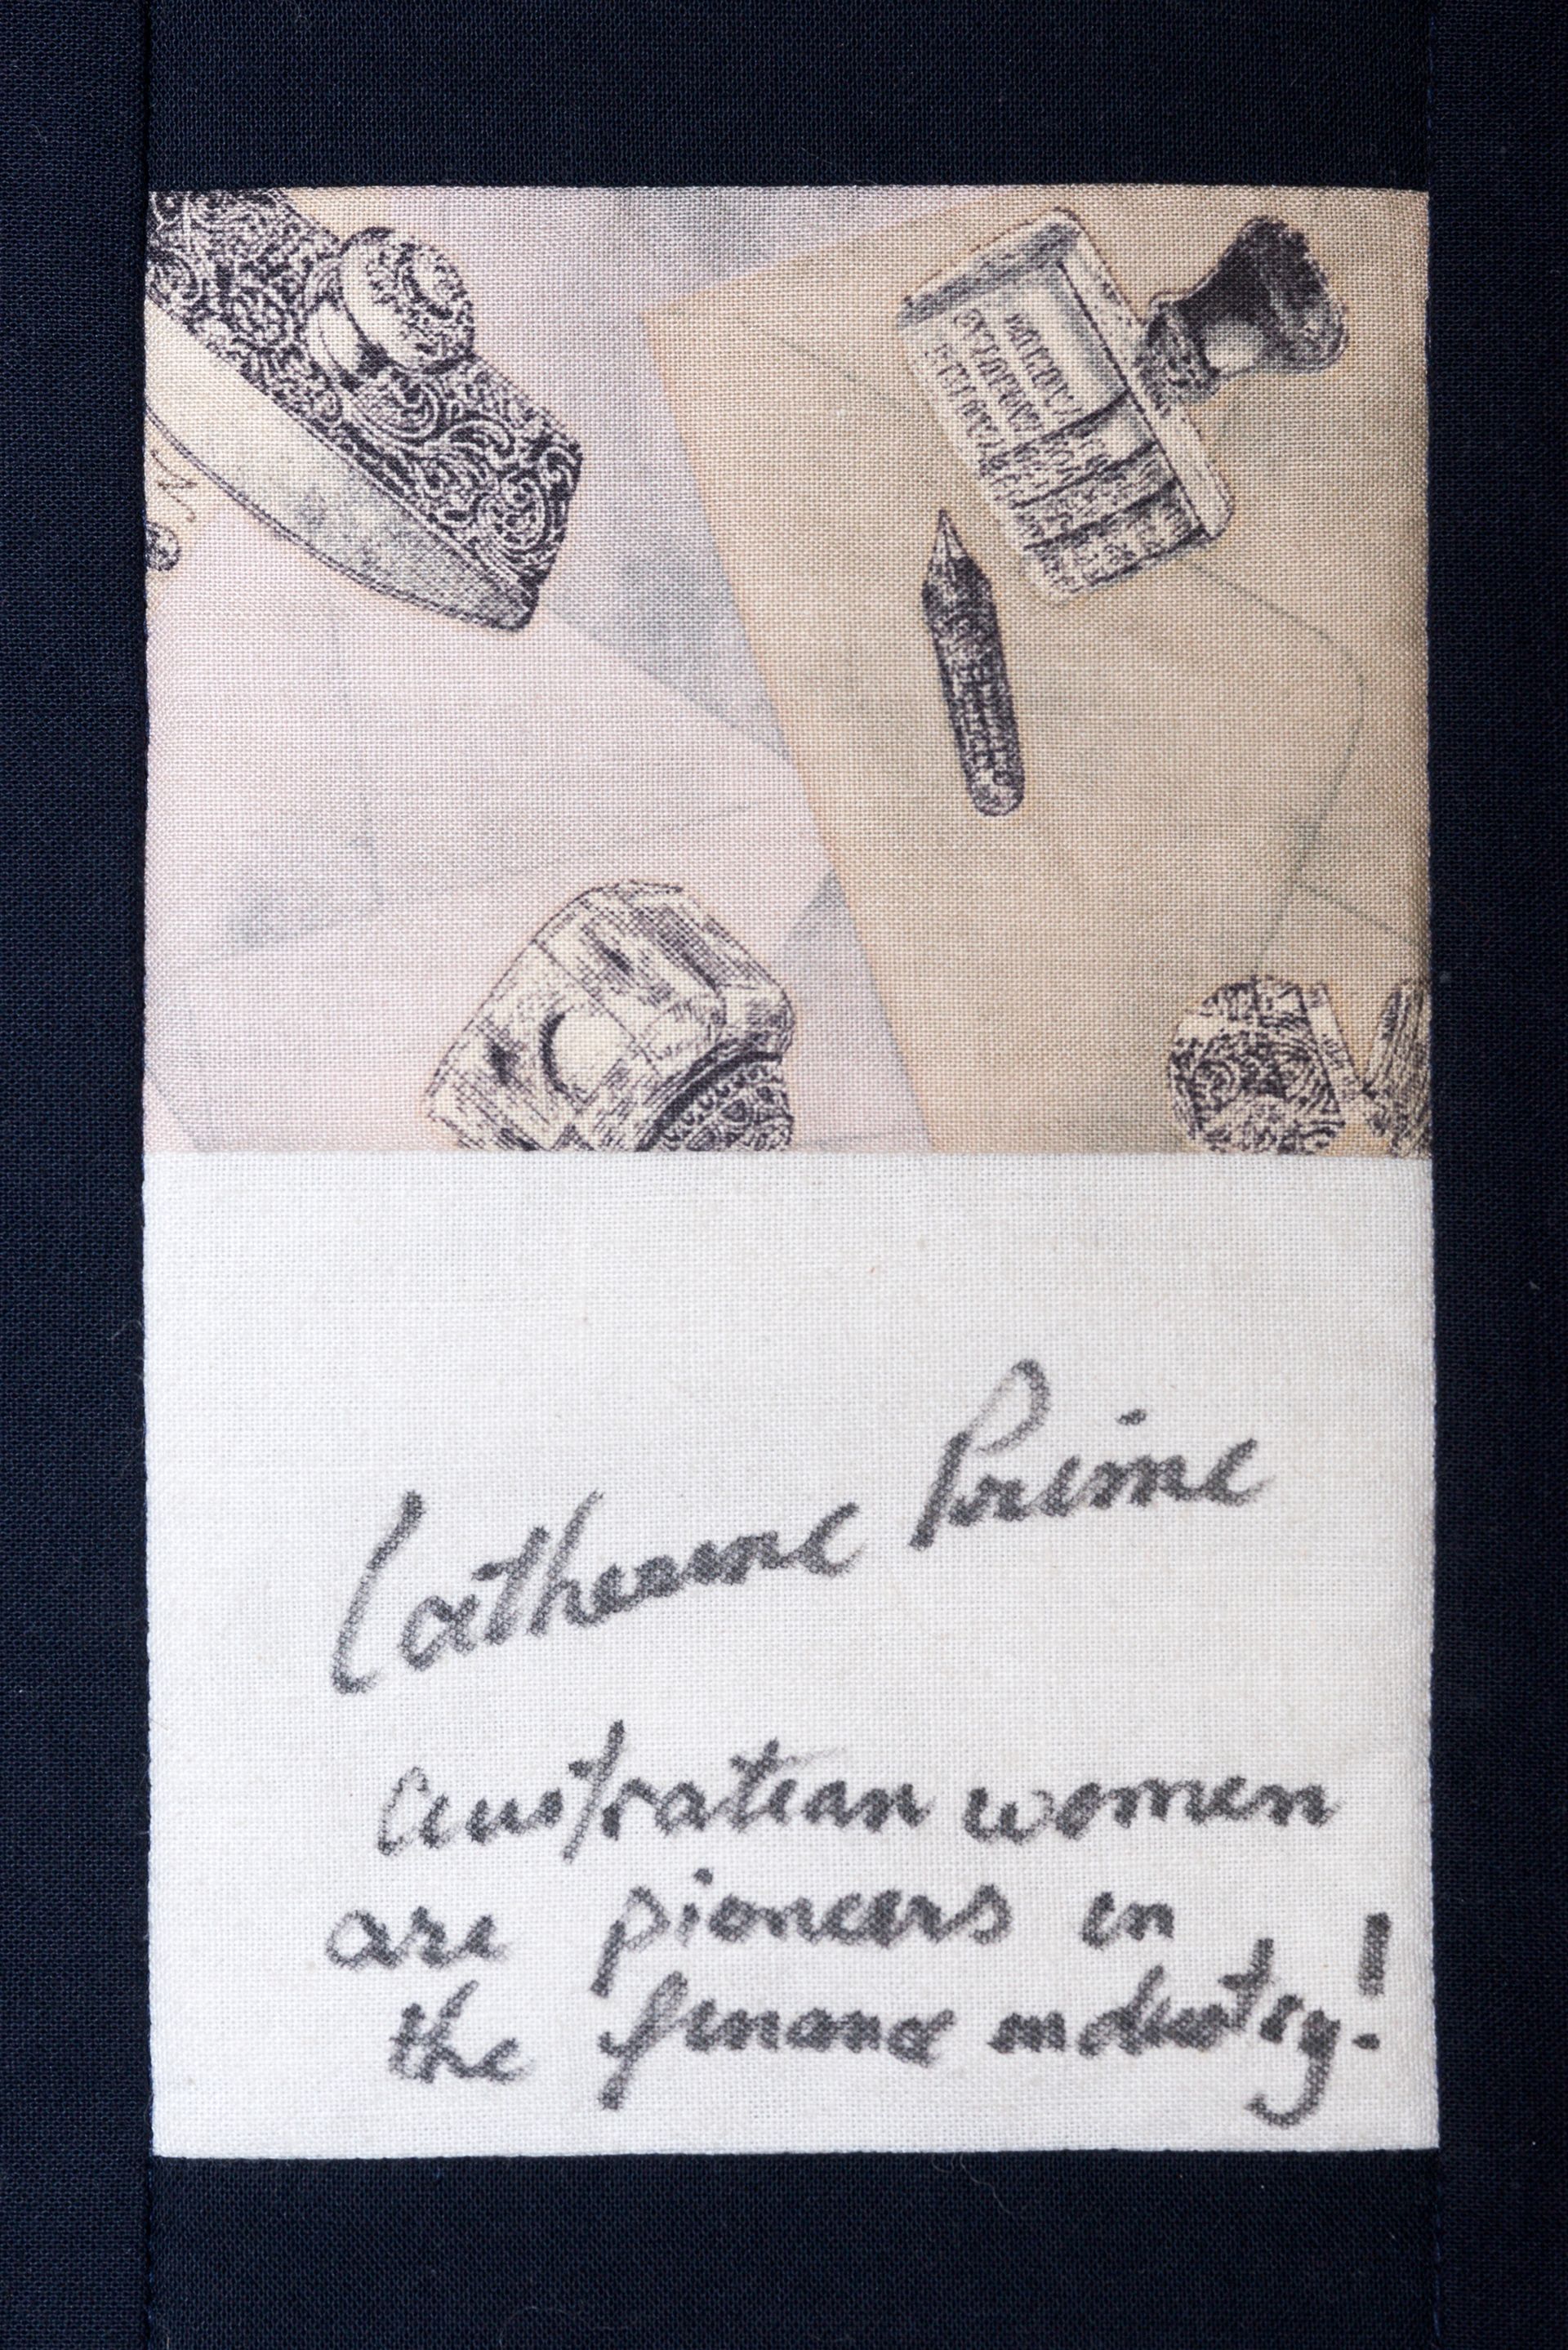 Catherine Prime
Australian women
are pioneers in
the finance industry!